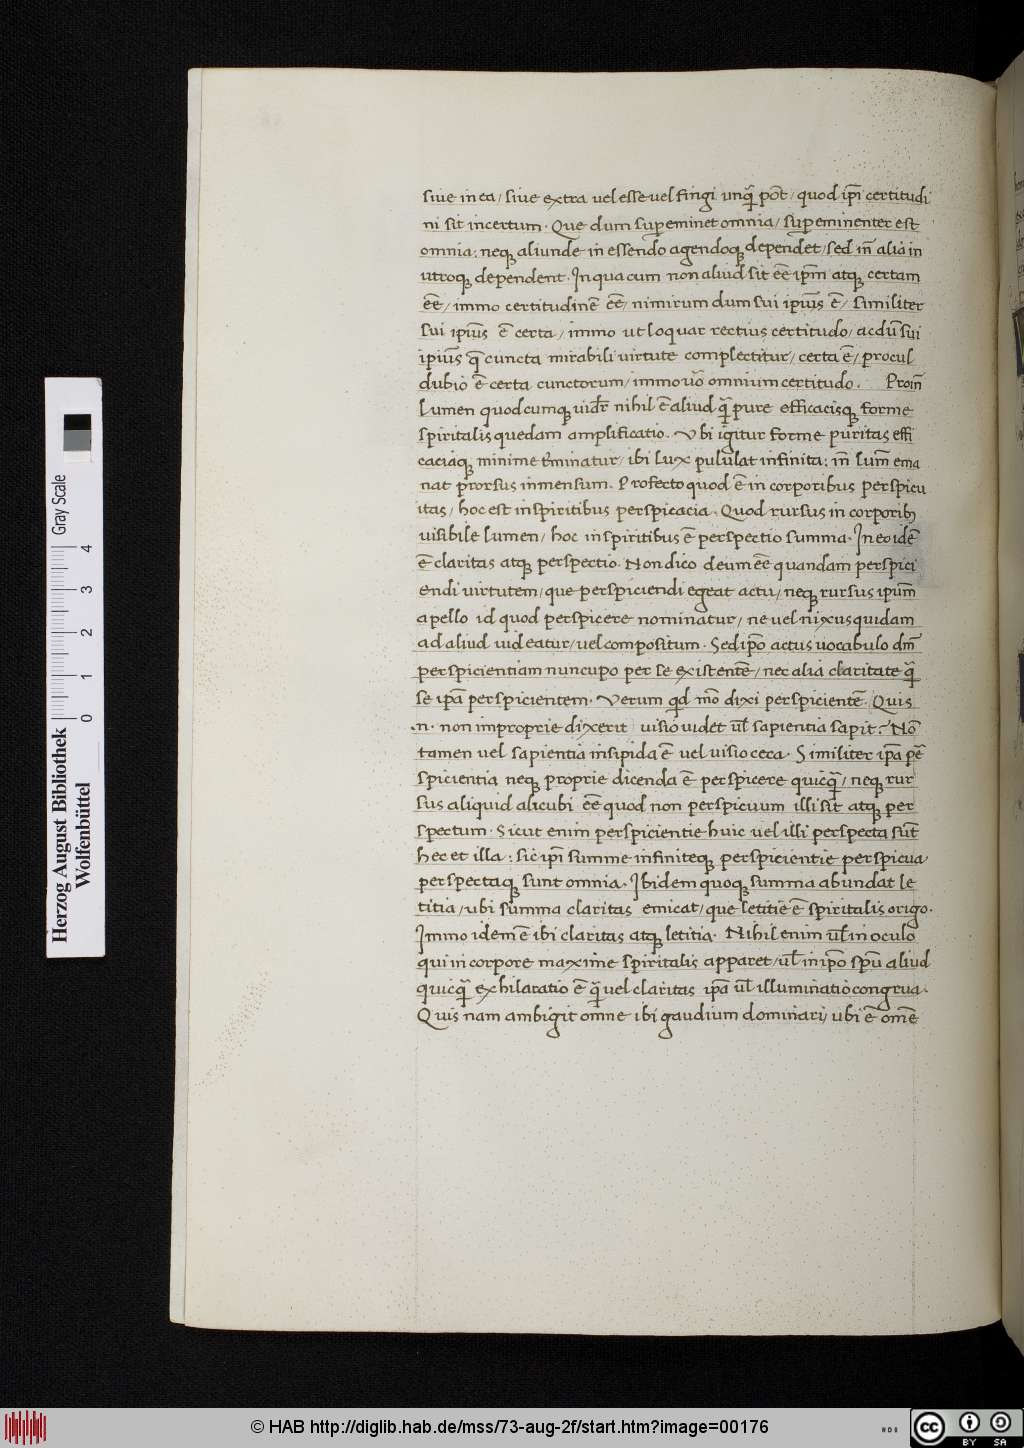 siue in ea / siue extra uel esse uel fingi unq̃ põt / quod ip̃i certitudi
ni sit incertum. Que dum supeminet omnia / supeminenter est
omnia: neqꝫ aliunde in essendo agendoqꝫ dependet / sed in̄ alia in
utroqꝫ dependent. In qua cum non aliud sit eē ip̄m atqꝫ certam
eē / immo certitudinē eē / nimirum dum sui ipiūs ē / similiter
sui ipiūs ē certa / immo ut loquar rectius certitudo / ac dū sui
ipiūs q̄ cuncta mirabili uirtute complectitur / certa ē / procul
dubio ē certa cunctorum / immo uo᷃ omnium certitudo. Proin̄
lumen quodcumqꝫ uidr̄ nihil ē aliud q̃ pure efficacisqꝫ forme
spiritalis quedam amplificatio. Vbi igitur forme puritas effi
caciaqꝫ minime t̄minatur / ibi lux pululat infinita: in̄ lum̄ ema
nat prorsus inmensum. Profecto quod ē in corporibus perspicu
itas / hoc est in spiritibus perspicacia. Quod rursus in corporibꝫ
uisibile lumen / hoc in spiritibus ē perspectio summa. In eo idē
ē claritas atqꝫ perspectio. Non dico deum eē quandam perspici
endi uirtutem / que perspiciendi egeat actu / neqꝫ rursus ipum̄
apello id quod perspicere nominatur / ne uel nixus quidam
ad aliud uideatur / uel compositum. Sed ip̄o actus uocabulo dm̄
perspicientiam nuncupo per se existentē / nec alia claritate q̃
se ip̄a perspicientem. Verum qd mō dixi perspicientē. Quis
.n. non improprie dixerit uisio uidet ul̄ sapientia sapit? Nō
tamen uel sapientia insipida ē uel uisio ceca. Similiter ip̄a pē
spicientia neqꝫ proprie dicenda ē perspicere quicq̃ / neqꝫ rur
sus aliquid alicubi eē quod non perspicuum illi sit atqꝫ per
spectum. Sicut enim perspicientie huic uel illi perspecta sūt
hec et illa: sic ip̄i summe infiniteqꝫ perspicientie perspicua
perspectaqꝫ sunt omnia. Ibidem quoqꝫ summa abundat le
titia / ubi summa claritas emicat / que letitie ē spiritalis origo.
Immo idem ē ibi claritas atqꝫ letitia. Nihil enim ul̄ in oculo
qui in corpore maxime spiritalis apparet / ul̄ in ip̄o spū aliud
quicq̃ exhilaratio ē q̃ uel claritas ip̄a ul̄ illuminatio congrua.
Quis nam ambigit omne ibi gaudium dominari / ubi ē omē
Herzog August Bibliothek
Wolfenbüttel
0 1 2 3 4
Gray Scale
© HAB http://diglib.hab.de/mss/73-aug-2f/start.htm?image=00176
cc BY SA